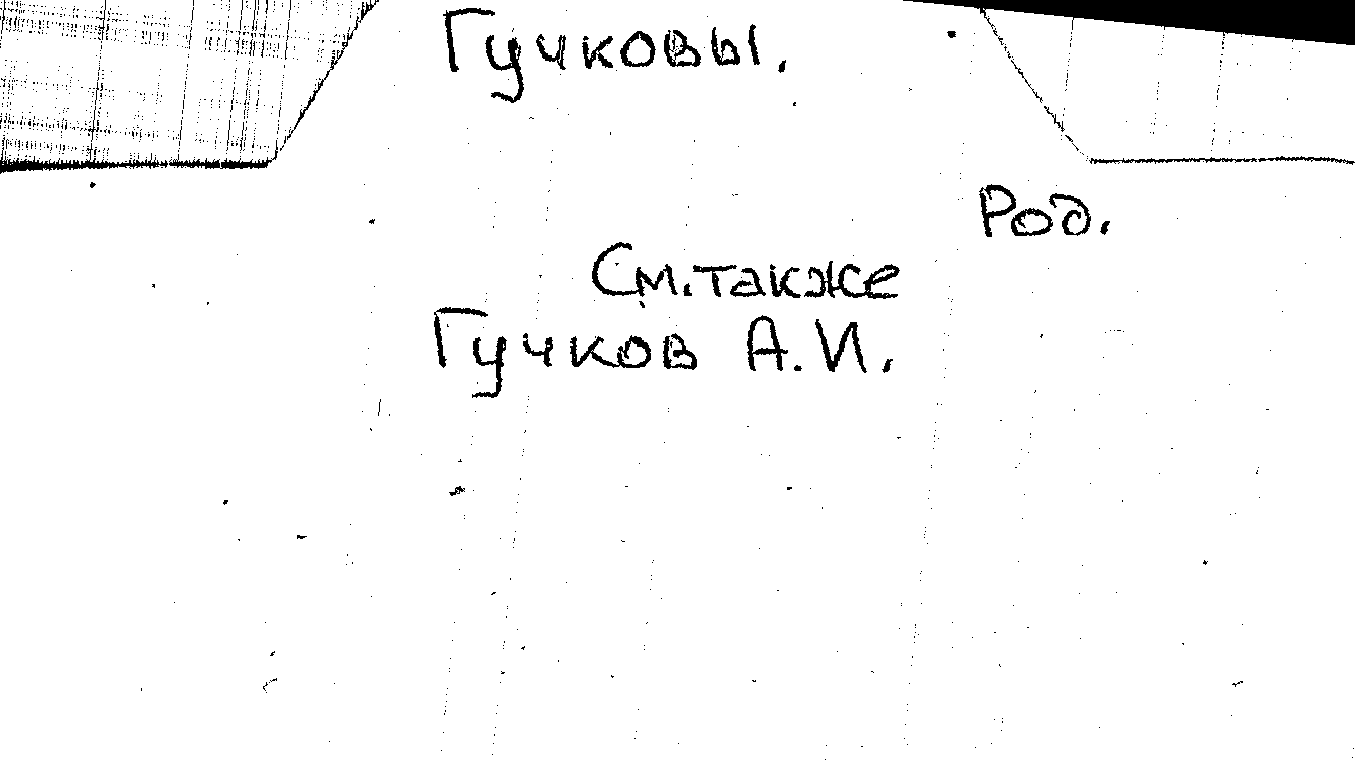 Гучковы.
Род.
См. также
Гучков А.И.